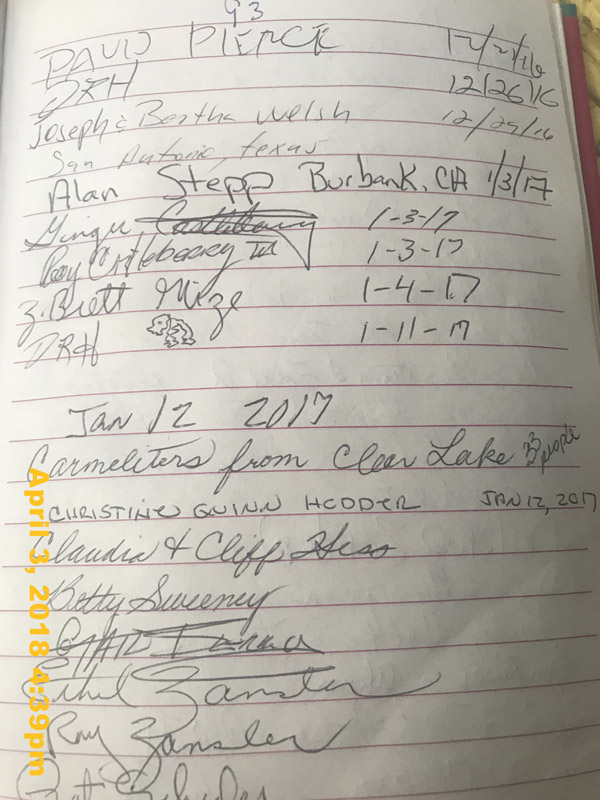 93
DAVID PIERCE 12/21/16
DRH 12/26/16
Joseph & Bertha Welsh 12/29/16
San Antonio, Texas
Alan Stepp Burbank, CA 1/3/17
Ginger 1-3-17
Roy Castleberry III 1-3-17
Z. Brett Mize 1-4-17
DRH 1-11-17
Jan 12 2017
Carmeliters from Clear Lake 33 people
CHRISTINE QUINN HODDER JAN 12, 2017
Claudia & Cliff Hess
Betty Sweeney
Ethel Zansler
Ray Zansler
Pat
April 3, 2018 4:39pm